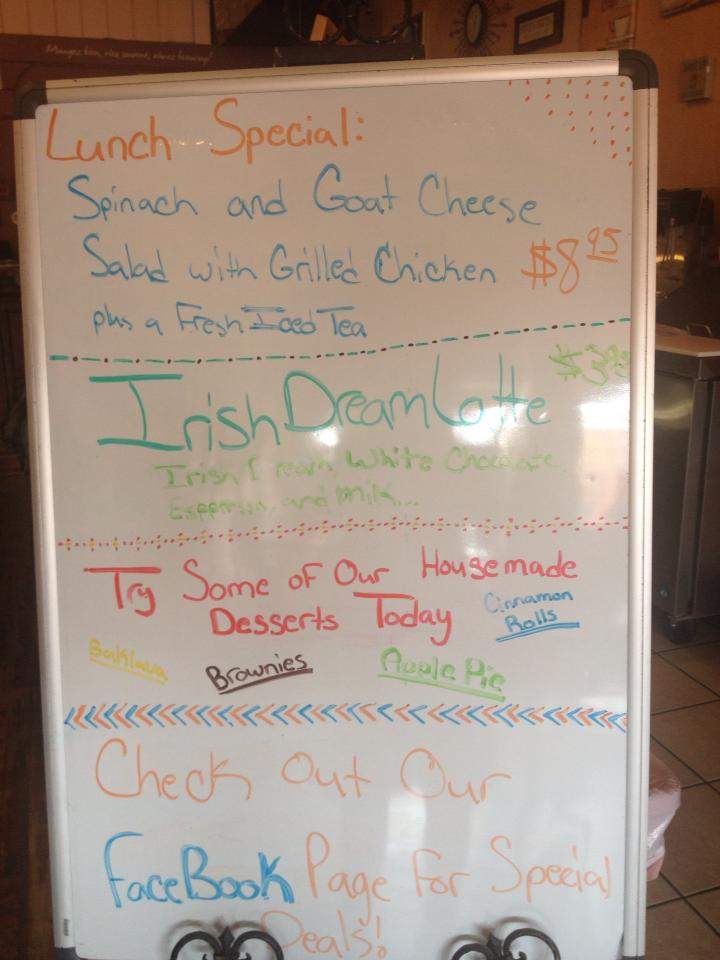 Lunch Special:
Spinach and Goat Cheese
Salad with Grilled Chicken $8 95
plus a Fresh Iced Tea
Irish Dream Latte
Irish Cream White Chocolate
Espresso and milk...
Try Some of Our Housemade
Desserts Today
Cinnamon
Rolls
Baklava
Brownies
Apple Pie
Check Out Our
FaceBook Page For Special
Deals!